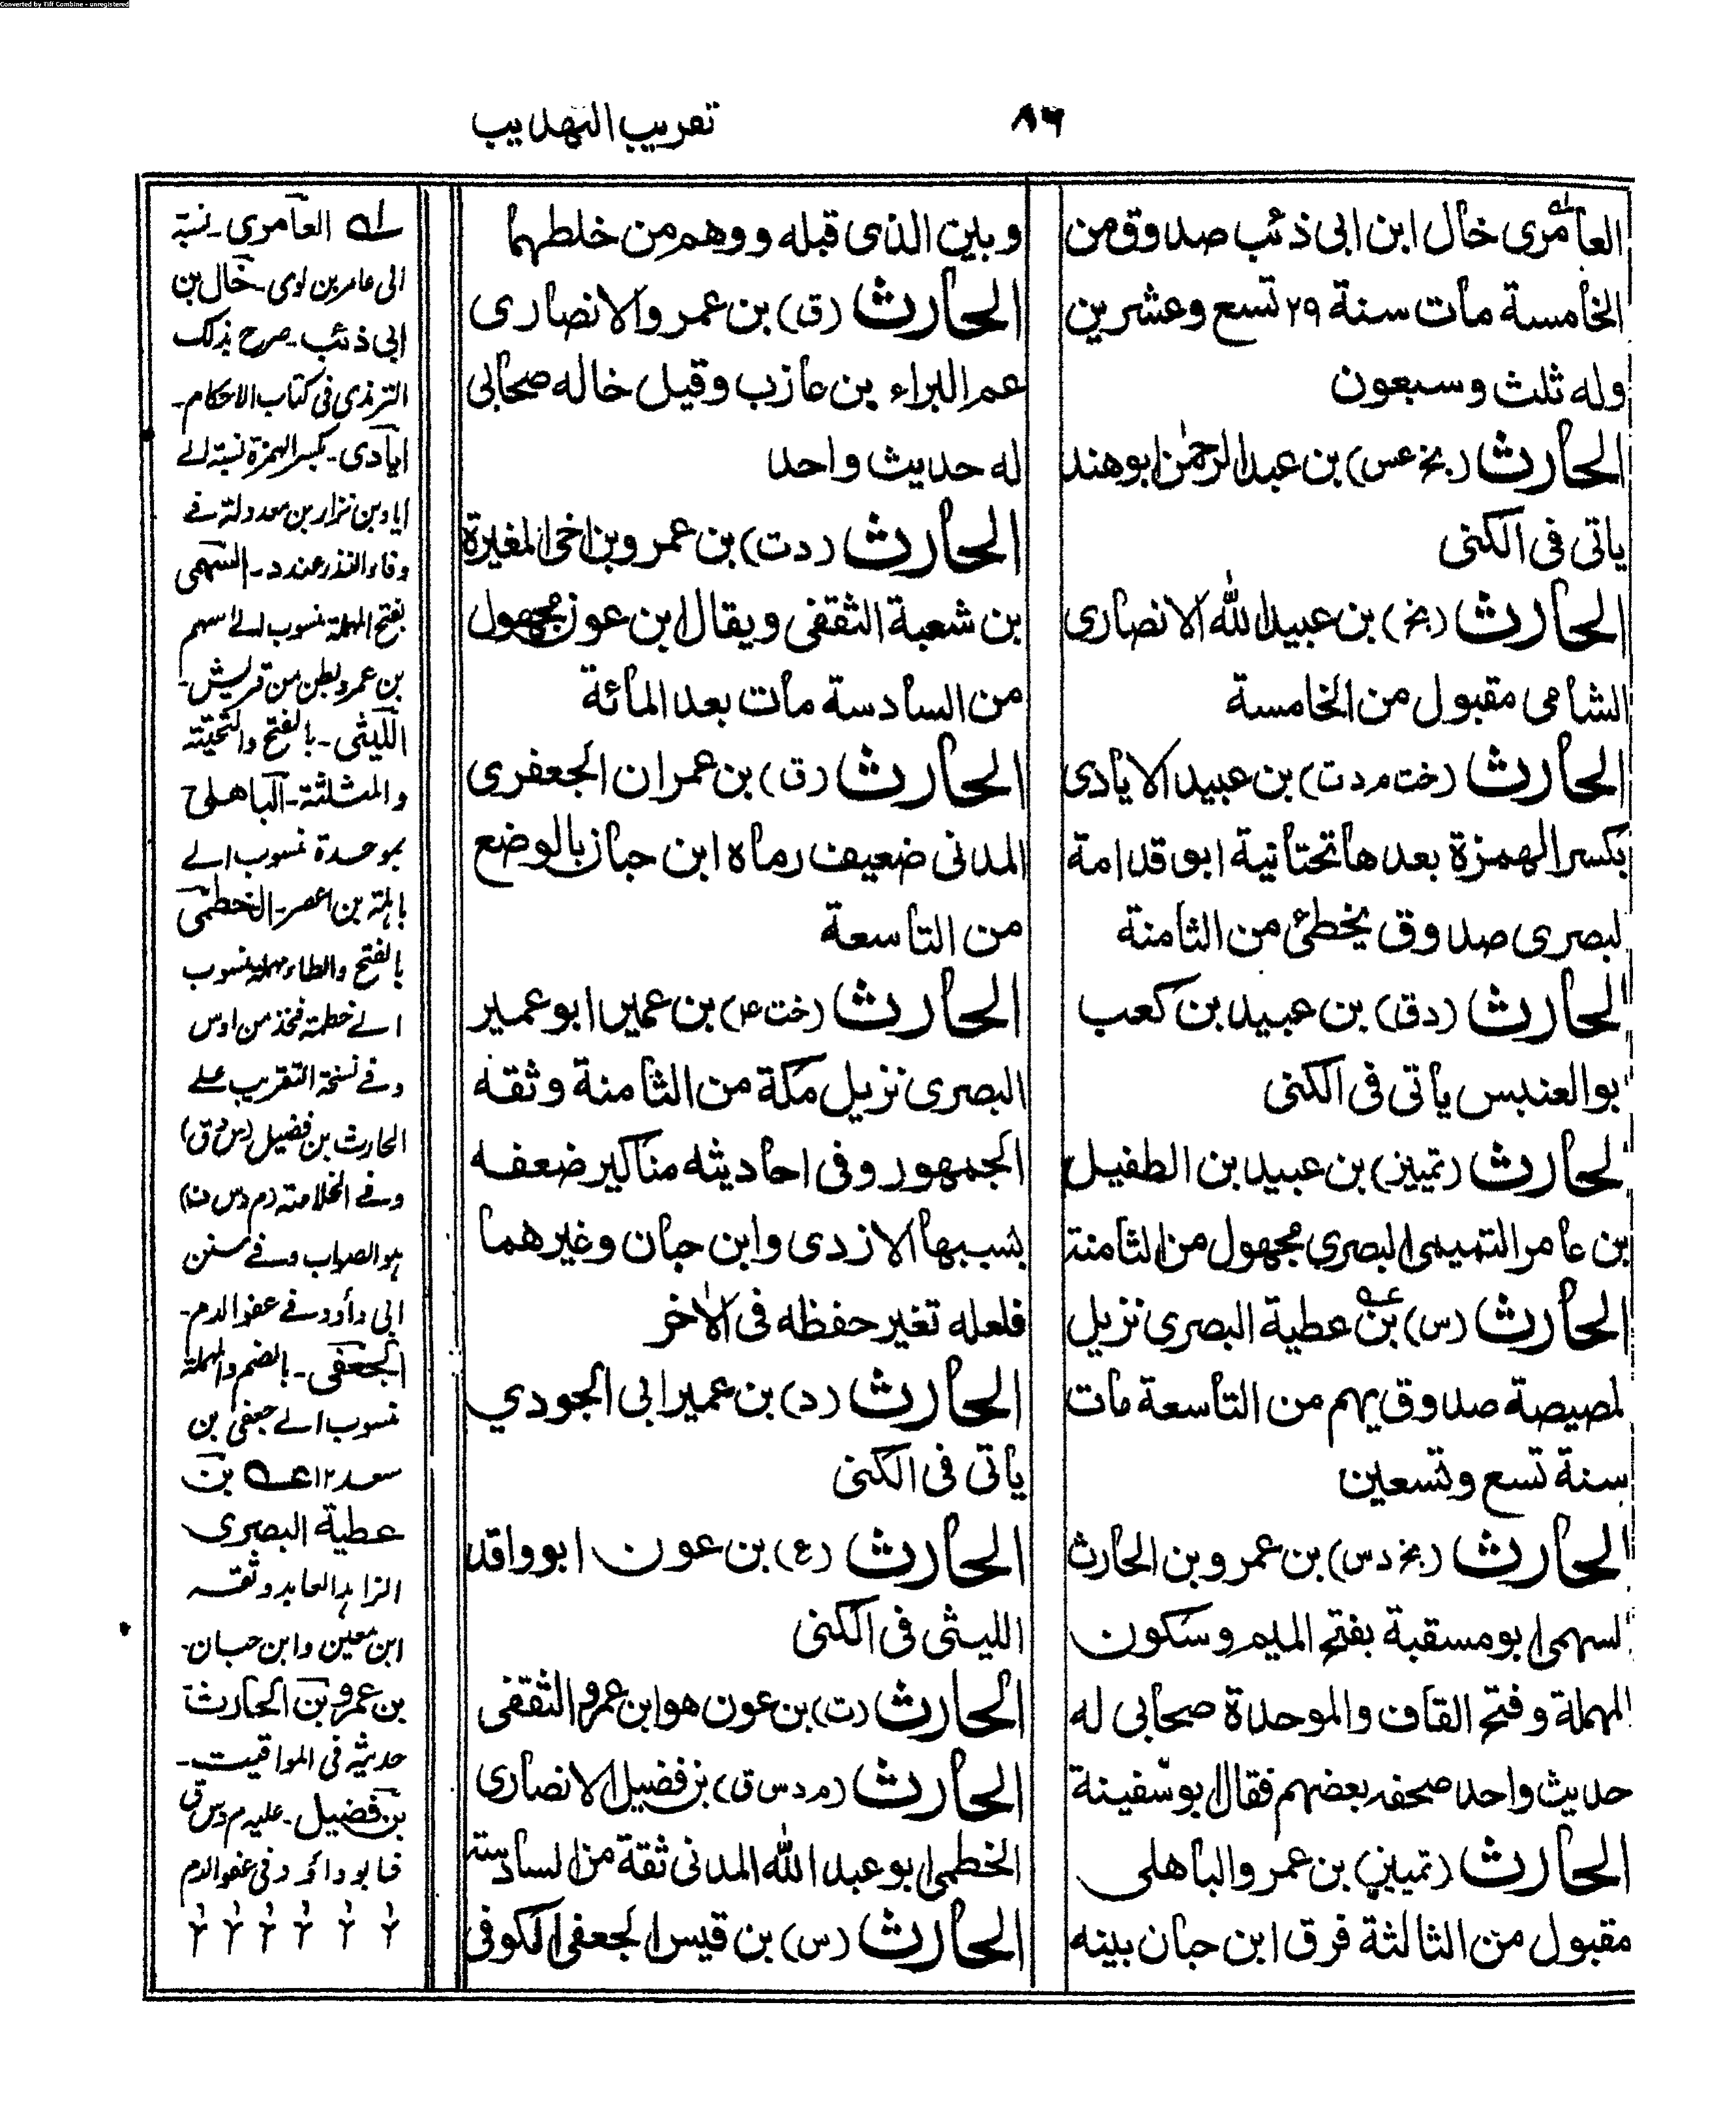 Converted by Tiff Combine - unregistered
٨٦
تقريب التهذيب
العامرى خال ابن ابى ذئب صدوق من
الخامسة مات سنة ٢٩ تسع وعشرين
وله ثلث وسبعون
الحارث (بخ عس) بن عبد الرحمٰن ابو هند
ياتى فى الكنى
الحارث (بخ) بن عبيد الله الانصارى
الشامى مقبول من الخامسة
الحارث (خت م د ت) بن عبيد الايادى
بكسر الهمزة بعدها تحتانية ابو قدامة
لبصرى صدوق يخطئ من الثامنة
لحارث (د ق) بن عبيد بن كعب
بو العنبس ياتى فى الكنى
لحارث (تمييز) بن عبيد بن الطفيل
بن عامر التميمى البصرى مجهول من الثامنة
الحارث (س) بن عطية البصرى نزيل
لمصيصة صدوق يهم من التاسعة مات
سنة تسع وتسعين
الحارث (بخ د س) بن عمرو بن الحارث
لسهمى ابو مسقبة بفتح الميم وسكون
المهملة وفتح القاف والموحدة صحابى له
حديث واحد صحفه بعضهم فقال ابو سفينة
الحارث (تمييز) بن عمرو الباهلى
مقبول من الثالثة فرق ابن حبان بينه
وبين الذى قبله ووهم من خلطهما
الحارث (ق) بن عمرو الانصارى
عم البراء بن عازب وقيل خاله صحابى
له حديث واحد
الحارث (د ت) بن عمرو بن اخى المغيرة
بن شعبة الثقفى ويقال ابن عون مجهول
من السادسة مات بعد المائة
الحارث (ق) بن عمران الجعفرى
المدنى ضعيف رماه ابن حبان بالوضع
من التاسعة
الحارث (خت ٤) بن عمير ابو عمير
البصرى نزيل مكة من الثامنة وثقه
الجمهور وفى احاديثه مناكير ضعفه
بسببها الازدى وابن حبان وغيرهما
فلعله تغير حفظه فى الاٰخر
الحارث (د) بن عمير ابى الجودي
ياتى فى الكنى
الحارث (ع) بن عون ابو واقد
الليثى فى الكنى
الحارث (ت) بن عون هو ابن عمرو الثقفى
الحارث (م د س ق) بن فضيل الانصارى
الخطمى ابو عبد الله المدنى ثقة من السادسة
الحارث (س) بن قيس الجعفى الكوفى
لـه العامري ـ نسبة
الى عامر بن لوى ـ خال بن
ابى ذئب ـ صرح بذلك
الترمذى فى كتاب الاحكام ـ
ايادى ـ بكسر الهمزة نسبة الے
اياد بن نزار بن معد وله فے
وفاء النذر عند د ـ السهمى
بفتح المهملة منسوب الے سهم
بن عمرو بطن من قريش ـ
الليثى ـ بالفتح والتحتية
والمثلثة ـ الباهلى
بموحدة منسوب الے
باهلة بن اعصر ـ الخطمى
بالفتح والطاء مهملة منسوب
الے خطمة فخذ من اوس
وفے نسخة التقريب علے
الحارث بن فضيل (س د ق)
وفے الخلاصة (م د س ق)
هو الصواب وفے سنن
ابى داؤد فے عفو الدم ـ
الجعفى ـ بالضم والمهملة
منسوب الے جعفى بن
سعد ١٢ عــه بن
عطية البصرى
الزاهد العابد وثقه
ابن معين وابن حبان ـ
بن عمرو بن الحارث
حديثه فى المواقيت ـ
بن فضيل ـ عليه م د س ق
فابو داؤد فى عفو الدم